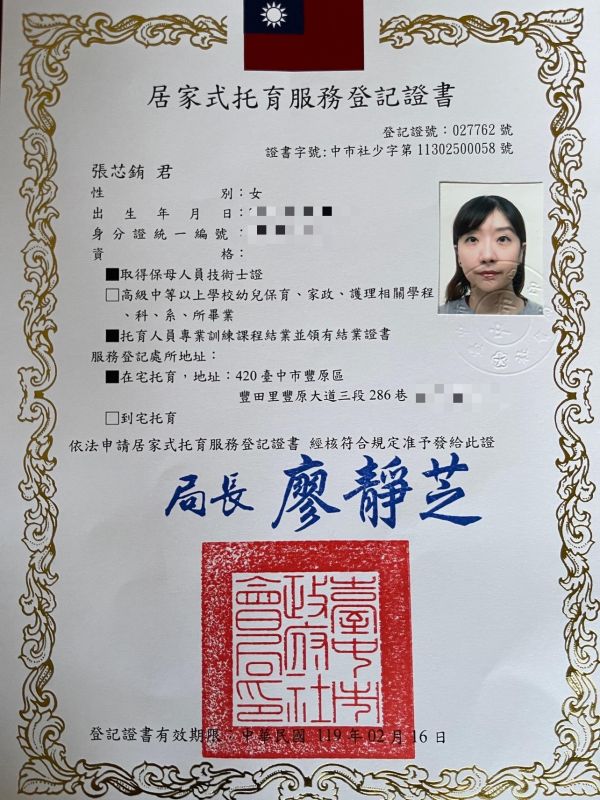 居家式托育服務登記證書
登記證號：027762 號
證書字號：中市社少字第 11302500058 號
張芯銪 君
性別：女
出生年月日：
身分證統一編號：
資格：
■取得保母人員技術士證
□高級中等以上學校幼兒保育、家政、護理相關學程
、科、系、所畢業
■托育人員專業訓練課程結業並領有結業證書
服務登記處所地址：
■在宅托育，地址：420 臺中市豐原區
豐田里豐原大道三段 286 巷
□到宅托育
依法申請居家式托育服務登記證書 經核符合規定准予發給此證
局長 廖靜芝
臺中市
政府社
會局印
登記證書有效期限：中華民國 119 年 02 月 16 日